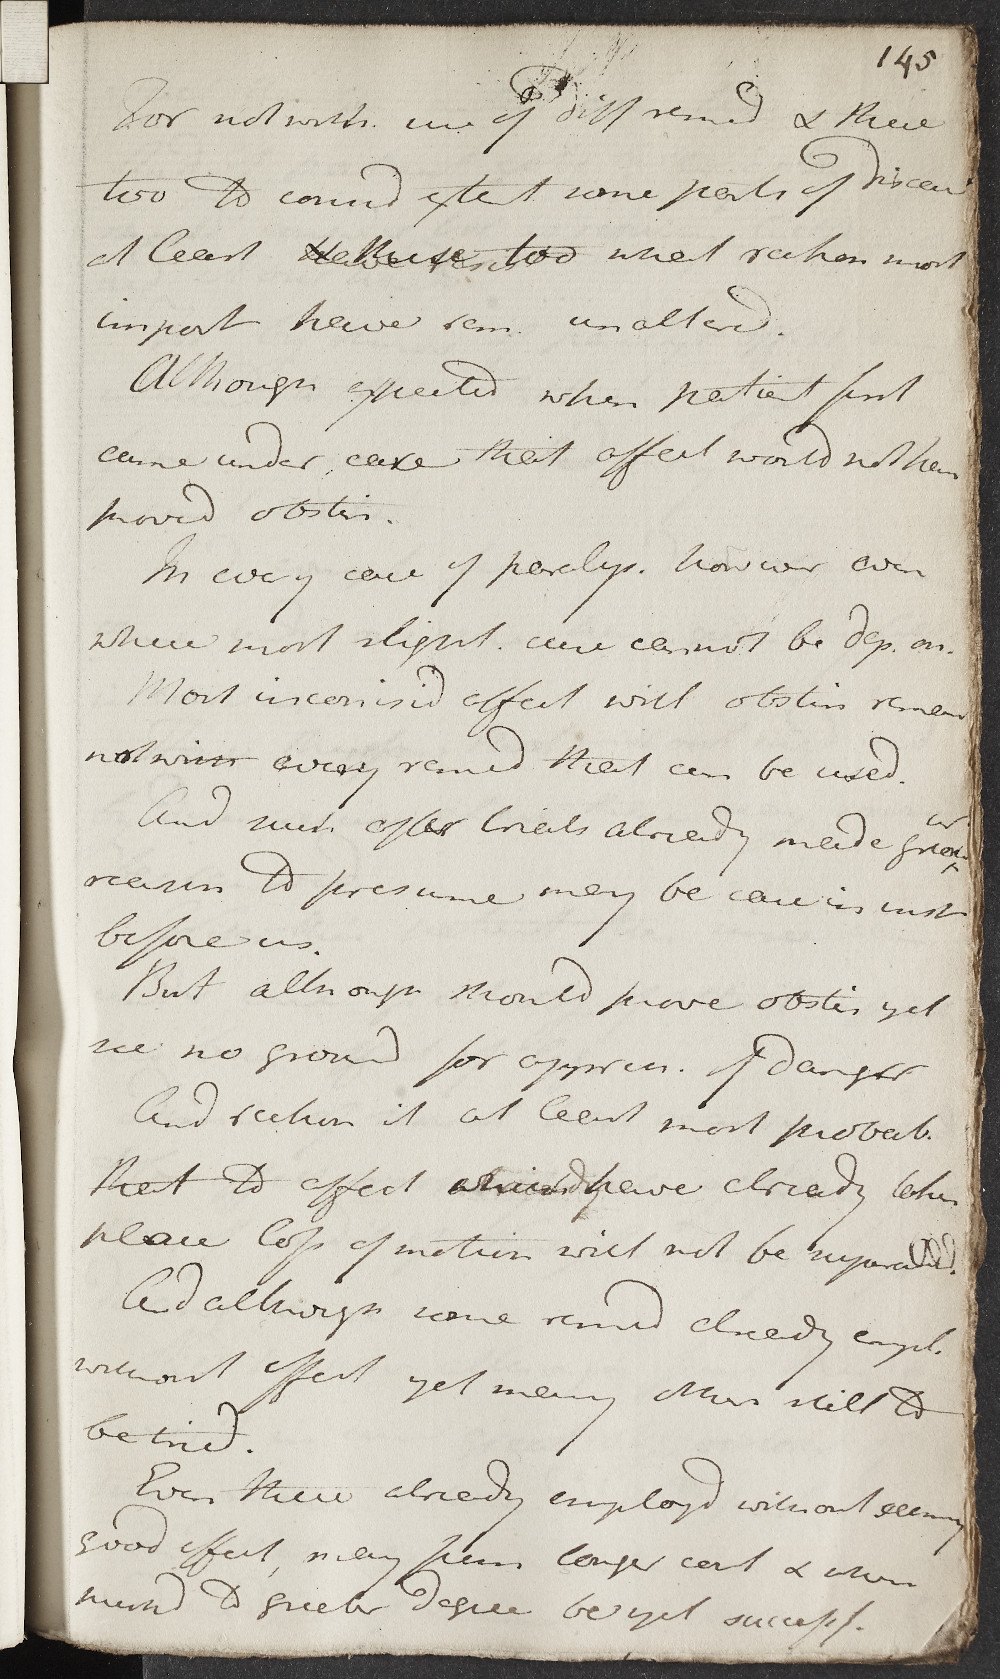 145
For notwith. use of diff remed & these
too to consid extent some parts of disease
at least & these too what reckon most
import have rem. unaltered.
Although expected when patient first
came under care that affect would not have
proved obstin.
In every case of paralys. however even
where most slight. cure cannot be dep. on.
Most inconsid affect will obstin remain
notwith every remed that can be used.
And such after trials already made great
reason to presume may be case in inst
before us.
But although should prove obstin yet
see no ground for appreh. of danger
And reckon it at least most probab.
that to affect which have already taken
place loss of motion will not be superadded.
And although some remed already empl.
without effect yet many others still to
be tried.
Even these already employd without seeming
good effect, may from longer cont & when
used to greater degree be yet successf.